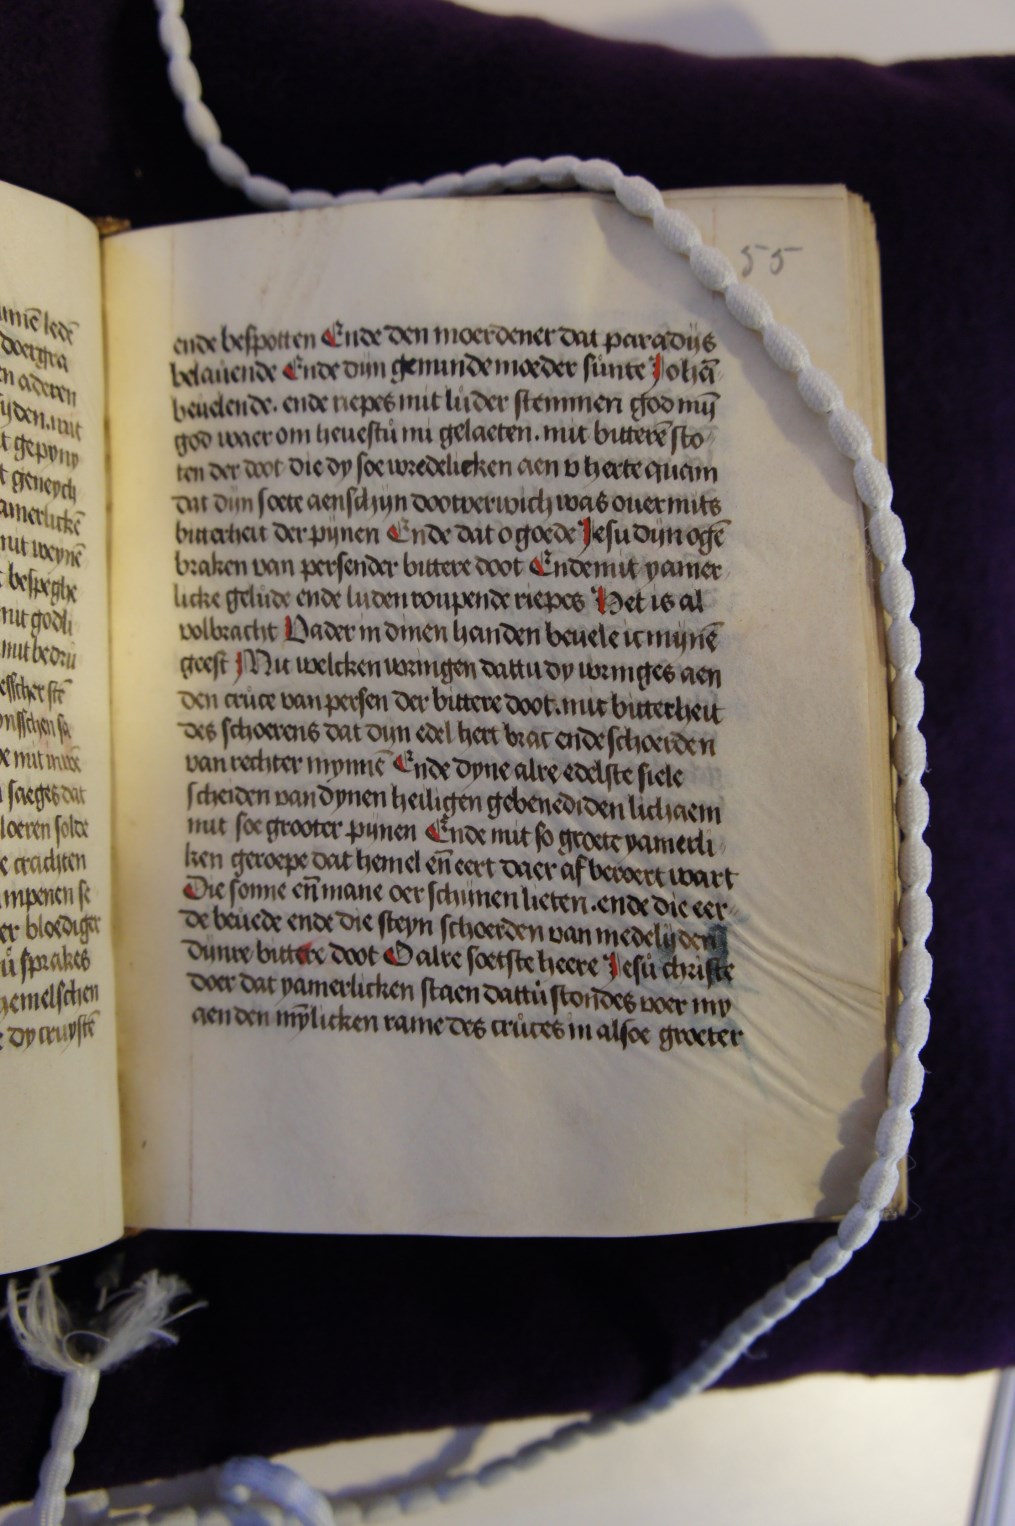 mē ledē
doergra
en aderen
yden. mit
t gepyny
t geneych
amerlickē
mit weynē
t bespeghe
mit godli
mit bedru
esscher stē
saeges dat
loeren solde
e crachten
mpenen se
er bloediger
ů sprakes
hemelschen
e dy cruystē
55
ende bespotten Ende den moerdener dat paradijs
belauende Ende dijn geminde moeder sunte Johā
beuelende. ende riepes mit luder stemmen god mij
god waer om heuestu mi gelaeten. mit bitterē sto
ten der doot die dy soe wredelicken aen v herte quam
dat dijn soete aenschijn dootverwich was ouermits
bitterheit der pijnen Ende dat o goede Jesu dijn ogē
braken van persender bittere doot Ende mit yamer
licke gelude ende luden roupende riepes Het is al
volbracht Vader in dinen handen beuele ic mijnē
geest Mit welcken wringen dattu dy wringes aen
den cruce van persen der bittere doot. mit bitterheit
des schoerens dat dijn edel hert brac ende schoerden
van rechter mynnē Ende dyne alre edelste siele
scheiden van dynen heiligen gebenediden lichaem
mit soe grooter pijnen Ende mit so groete yamerli
ken geroepe dat hemel eñ eert daer af beroert wart
Die sonne eñ mane oer schijnen lieten. ende die eer
de beuede ende die steyn schoerden van medelijden
dijnre bittere doot O alre soetste heere Jesu christe
doer dat yamerlicken staen dattu stondes voer my
aen den mȳlicken rame des cruces in alsoe groeter